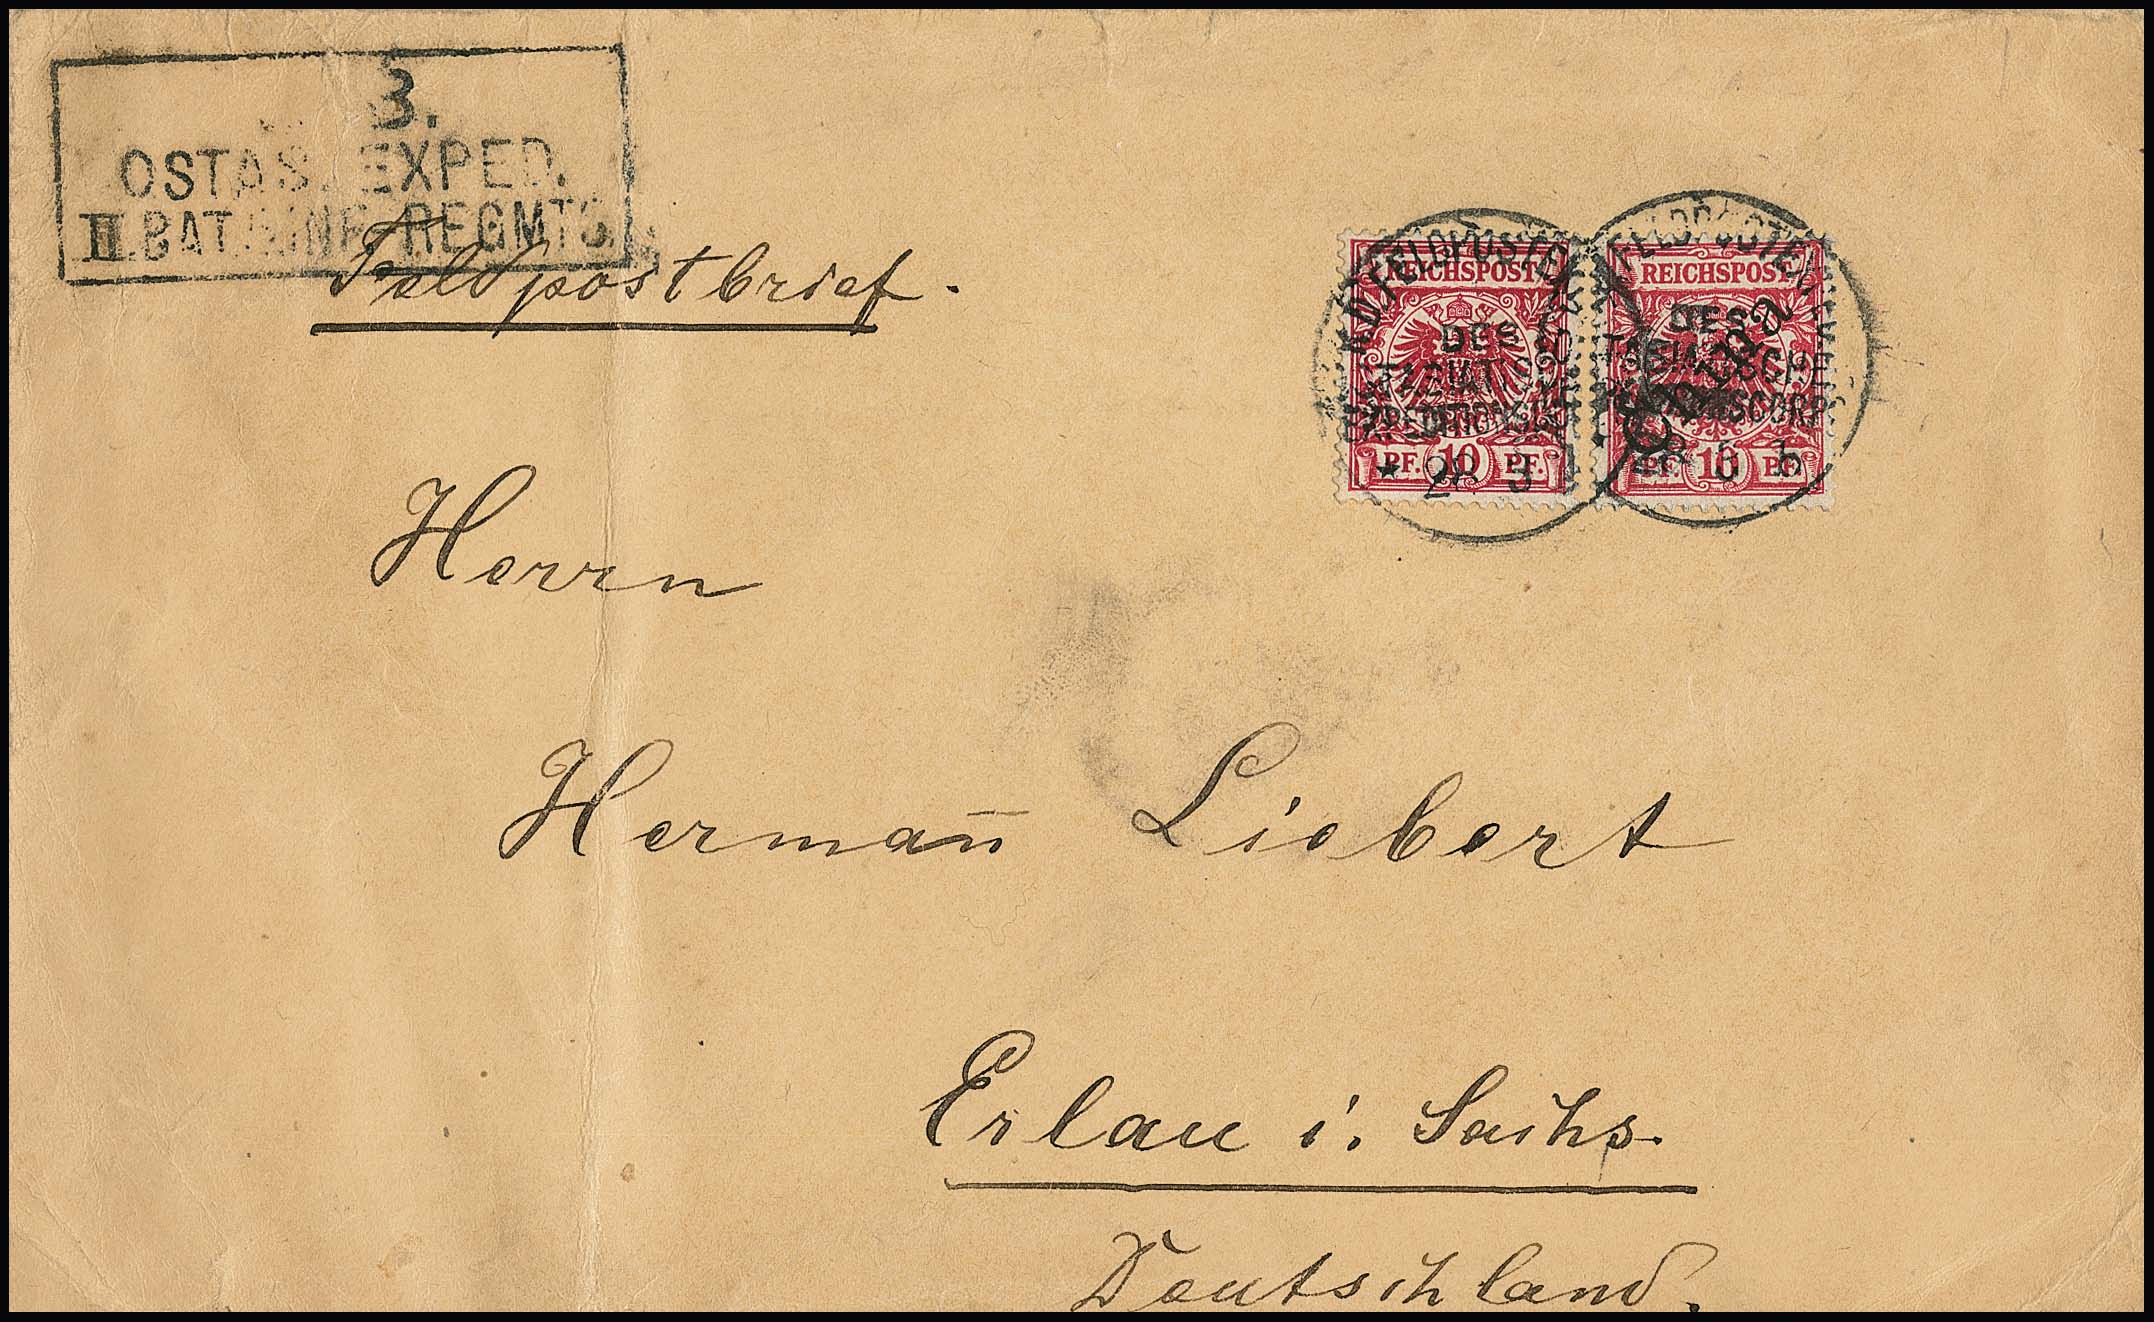 3.
OSTAS. EXPED.
II. BAT. INF. REGMTS.
Feldpostbrief.
REICHSPOST
DES
EXPEDITIONSCORPS
PF. 10 PF.
REICHSPOST
DES
China
PF. 10 PF.
Herrn
Herman̄ Liebert
Erlau i. Sachs.
Deutschland.